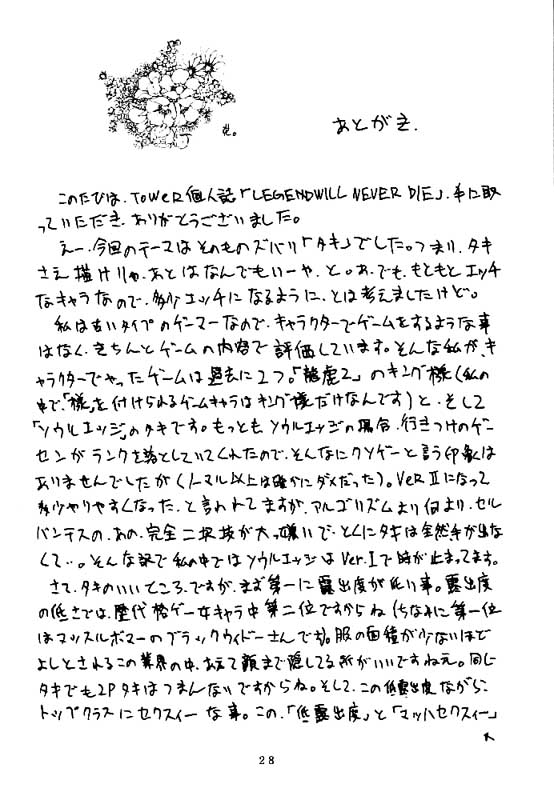 あとがき.
花。
このたびは、TOWER個人誌「LEGEND WILL NEVER DIE」、手に取
っていただき、ありがとうございました。
えー、今回のテーマはそのものズバリ「タキ」でした。つまり、タキ
さえ描けりゃ、あとはなんでもいーや、と。あ、でも、もともとエッチ
なキャラなので、多少エッチになるように、とは考えましたけど。
私は古いタイプのゲーマーなので、キャラクターでゲームをするような事
はなく、きちんとゲームの内容で評価しています。そんな私が、キ
ャラクターでやったゲームは過去に2つ。「龍虎2」のキング様(私の
中で、「様」を付けられるゲームキャラはキング様だけなんです)と、そして
「ソウルエッジ」のタキです。もっとも、ソウルエッジの場合、行きつけのゲー
センがランクを落としていてくれたので、そんなにクソゲーと言う印象は
ありませんでしたが(ノーマル以上は確かにダメだった)。Ver.IIになって
多少やりやすくなった、と言われてますが、アルゴリズムより何より、セル
バンテスの、あの、完全二択技が大っ嫌いで、とくにタキは全然手が出な
くて…。そんな訳で私の中ではソウルエッジはVer.Iで時が止まってます。
さて、タキのいいところ、ですが、まず第一に露出度が低い事。露出度
の低さでは、歴代格ゲー女キャラ中第二位ですからね(ちなみに第一位
はマッスルボマーのブラックウィドーさんです)。服の面積が少ないほど
よしとされるこの業界の中、あえて顔まで隠してる所がいいですねえ。同じ
タキでも2Pタキはつまんないですからね。そして、この低露出度ながら、
トップクラスにセクスィーな事。この、「低露出度」と「マッハセクスィー」
28